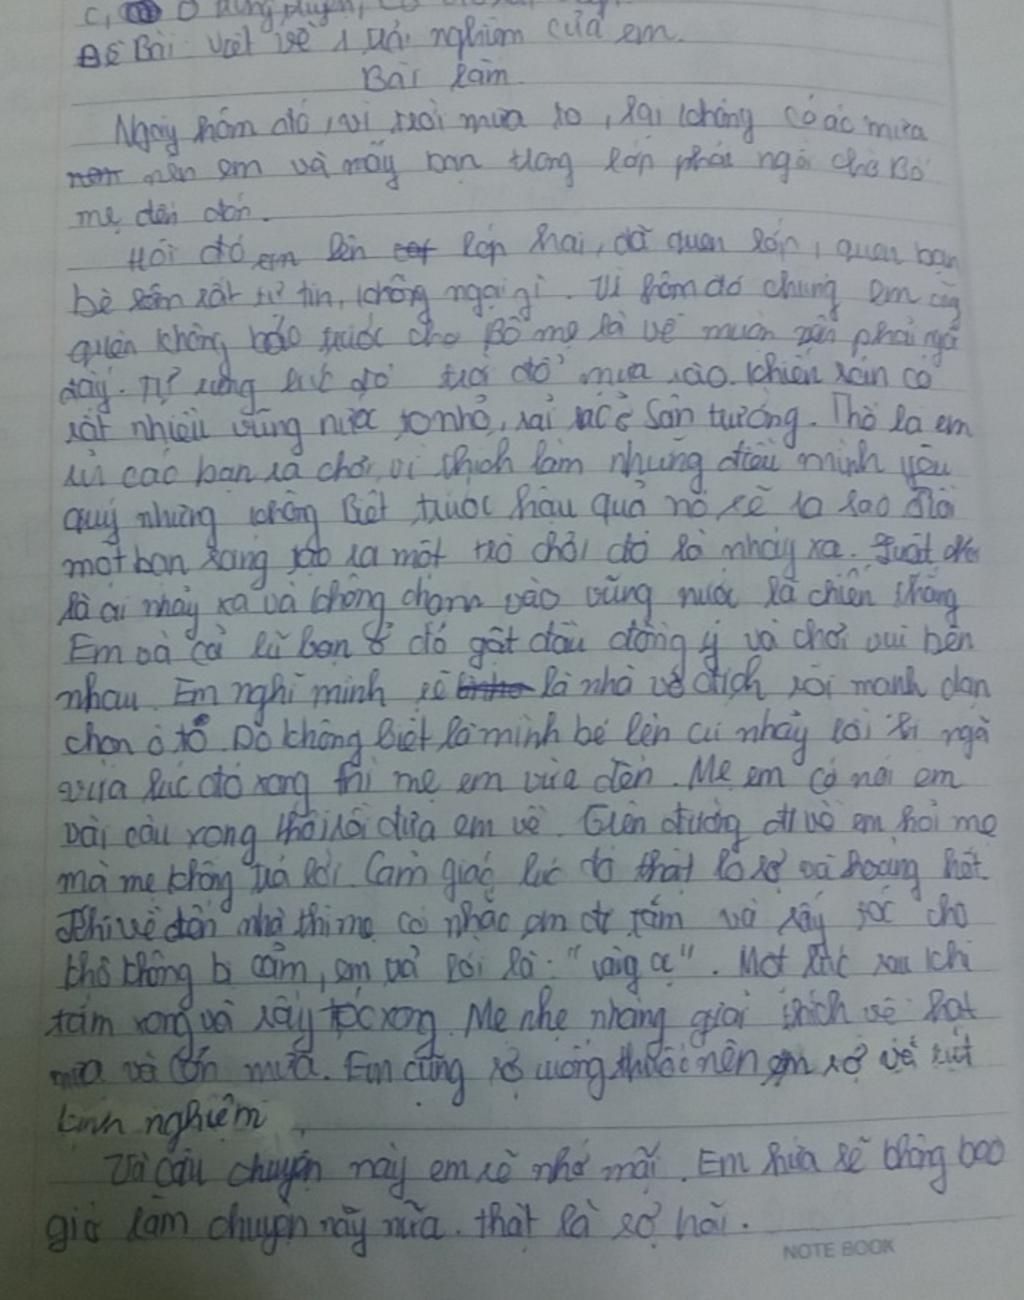 Đề Bài: Viết về 1 trải nghiệm của em.
Bài làm
Ngày hôm đó, vì trời mưa to, lại không có áo mưa
nên em và mấy bạn trong lớp phải ngồi chờ Bố
mẹ đến đón.
Hồi đó em lên lớp hai, đã quen lớp, quen bạn
bè rất tự tin, không ngại gì. Vì hôm đó chúng em cũng
quên không báo trước cho Bố mẹ là về muộn nên phải ngồi
đấy. Tự lúc đó trời đổ mưa rào. khiến sân có
rất nhiều vũng nước to nhỏ, rải rác ở sân tường. Thế là em
các bạn ra chơi, vì thích làm những điều mình yêu
quý nhưng không Biết trước hậu quả nó sẽ ra sao
một bạn sáng tạo ra một trò chơi đó là nhảy xa. Luật
là ai nhảy xa và không chạm vào vũng nước là chiến thắng
Em và cả lũ bạn ở đó gật đầu đồng ý và chơi vui bên
nhau. Em nghĩ mình sẽ là nhà vô địch rồi mạnh dạn
chọn ô tô. Do không Biết là mình bé lên cứ nhảy rồi bị ngã
vừa lúc đó xong thì mẹ em vừa đến. Mẹ em có nói em
vài câu xong thôi rồi đưa em về. Trên đường đi về em hỏi mẹ
mà mẹ không trả lời. Cảm giác lúc đó thật là sợ và hoảng hốt.
Khi về đến nhà thì mẹ có nhắc em đi tắm và sấy tóc cho
khô không bị cảm, em trả lời là: "vâng ạ". Một lúc sau khi
tắm xong và sấy tóc xong. Mẹ nhẹ nhàng giải thích về hạt
mưa và cơn mưa. Em cũng sợ uống thuốc nên em sợ về rút
kinh nghiệm
Và câu chuyện này em sẽ nhớ mãi. Em hứa sẽ không bao
giờ làm chuyện này nữa. thật là sợ hãi.
NOTE BOOK